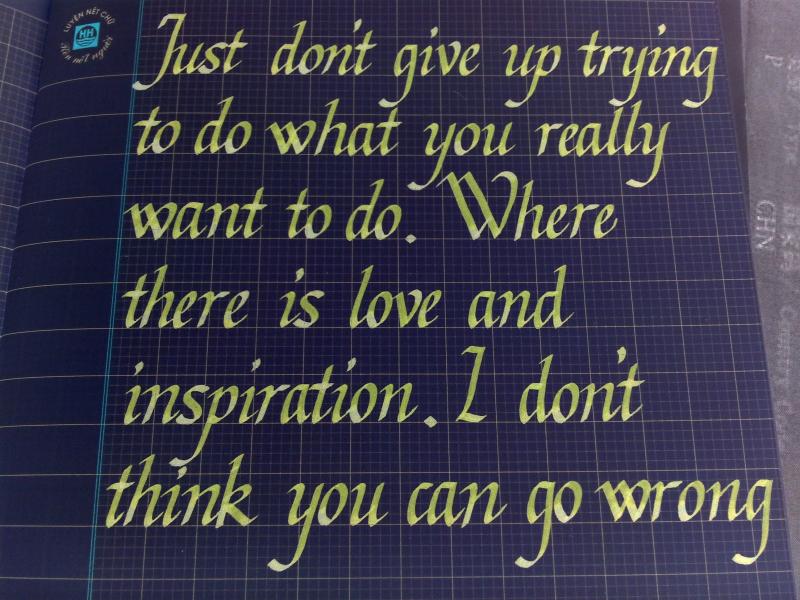 LUYỆN NÉT CHỮ
HH
Rèn nết người
Just don't give up trying
to do what you really
want to do. Where
there is love and
inspiration. I don't
think you can go wrong
GHN